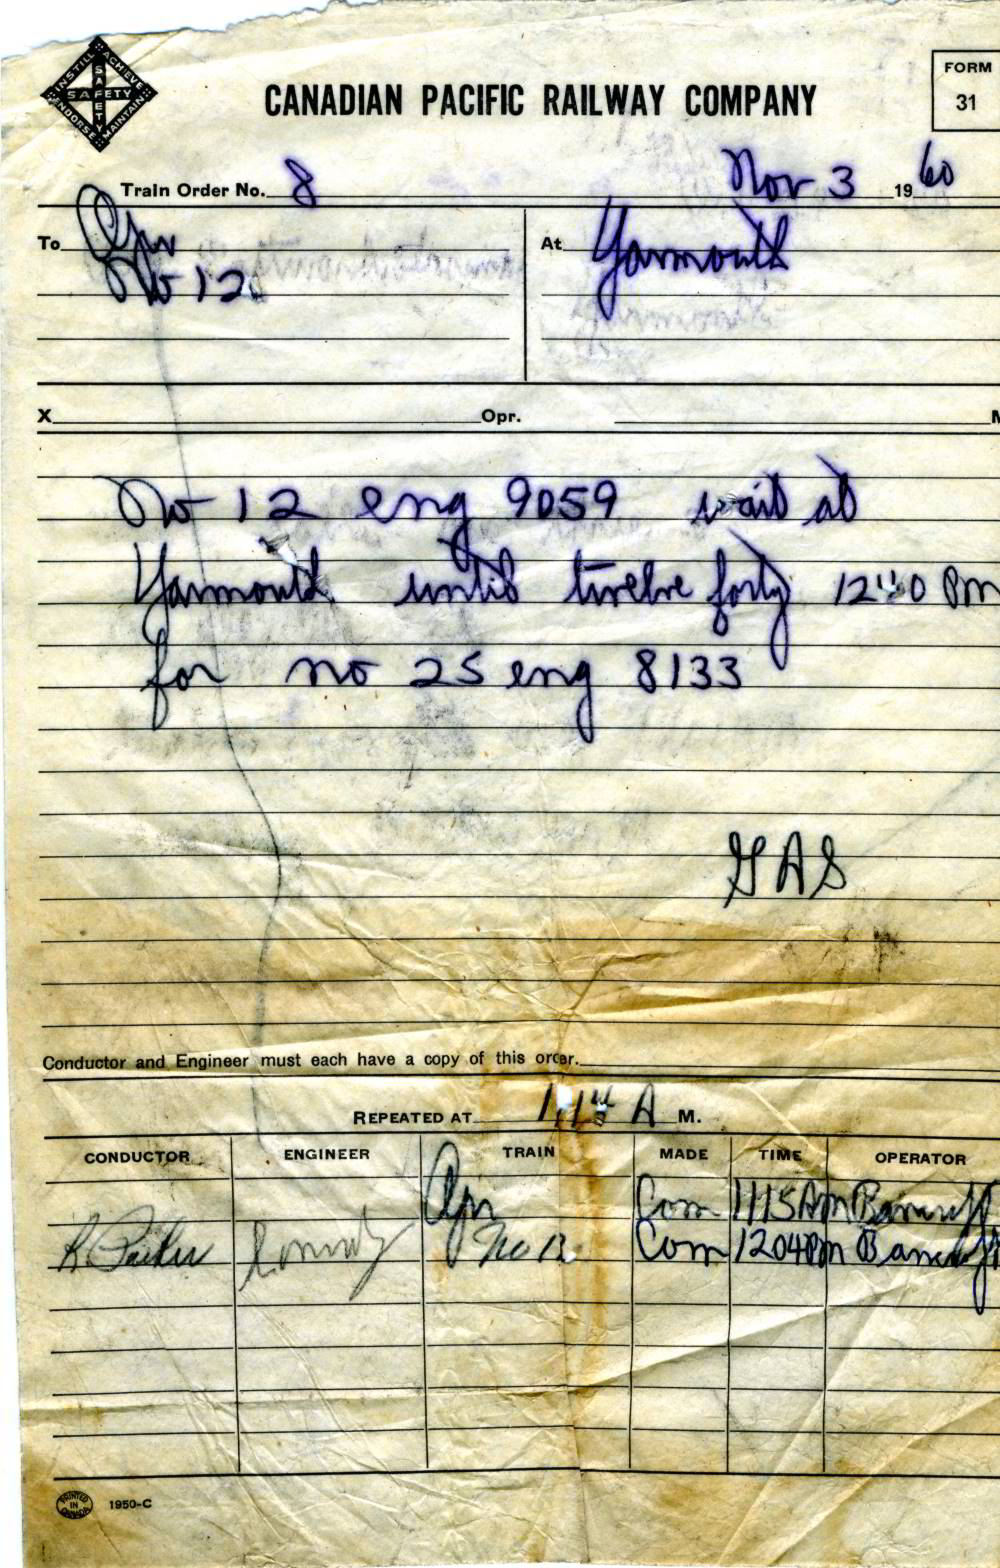 INSTILL ACHIEVE
SAFETY
SAFETY
ENDORSE MAINTAIN
CANADIAN PACIFIC RAILWAY COMPANY
FORM
31
Train Order No. 8 Nov 3 19 60
To Opr At Yarmouth
No 12
X Opr. M
No 12 eng 9059 wait at
Yarmouth until twelve forty 1240 Pm
for no 25 eng 8133
GAS
Conductor and Engineer must each have a copy of this order.
REPEATED AT A M.
CONDUCTOR ENGINEER TRAIN MADE TIME OPERATOR
Opr Com 1115 Am Bancroft
R Parker No 12 Com 1204 Pm Bancroft
PRINTED IN CANADA 1950-C